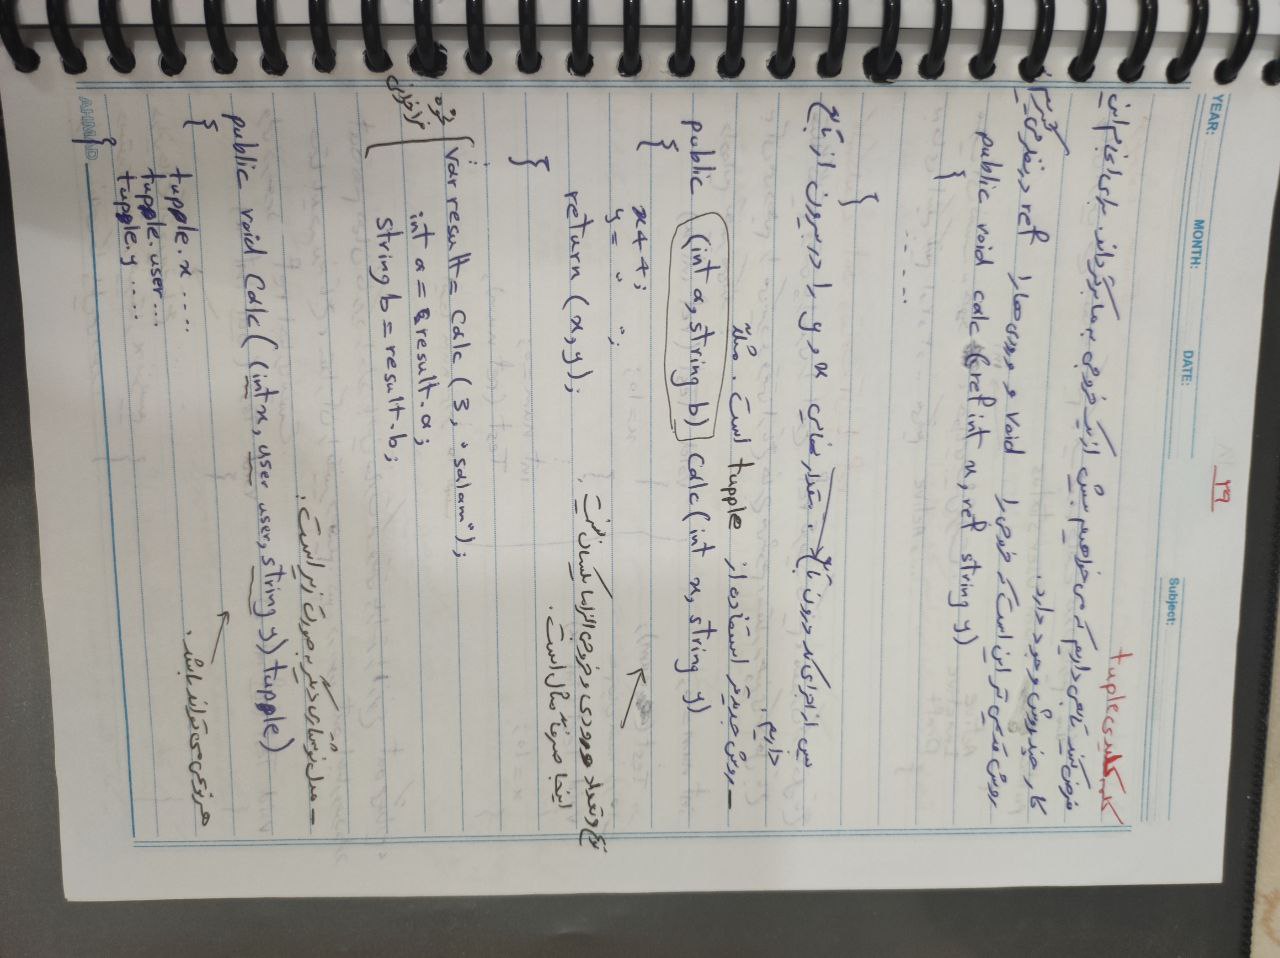 ۲۹
YEAR:
MONTH:
DATE:
Subject:
کلمه کلیدی tuple
فرض کنید تابعی داریم که می خواهیم بیش از یک خروجی به ما برگرداند. برای انجام این
کار چند روش وجود دارد.
روش قدیمی تر این است که خروجی را void و ورودی ها را ref در نظر می گیریم
public void calc (ref int x, ref string y)
{
......
}
پس از اجرای کد درون تابع، مقدار نهایی x و y را در بیرون از تابع
داریم.
– روش جدیدتر استفاده از tupple است. مثلاً
public (int a, string b) Calc (int x, string y)
{
x++;
y = " ";
return (x,y);
نوع و تعداد ورودی و خروجی الزاما یکسان نیست.
اینجا صرفاً مثال است.
}
نحوه فراخوانی
var result = Calc (3, "salam");
int a = result.a;
string b = result.b;
– مدل نوشتاری دیگر به صورت زیر است:
public void Calc ((int x, user user, string y) tupple)
{
هر نوعی می تواند باشد.
tupple.x ....
tupple.user ...
tupple.y ....
}
AHMAD